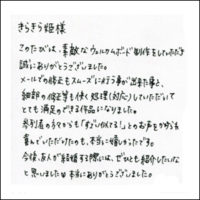 きらきら姫様
このたびは、素敵なウェルカムボード制作をしていただき
誠にありがとうございました。
メールでの修正もスムーズに行う事が出来た事と、
細部の修正等も快く処理(対応)していただいて
とても満足のできる作品になりました。
参列者の方々からも「すごい似てる!」とのお声をがらも
喜んでいただけたのも、本当に嬉しかったです。
今後、友人が結婚する際には、ぜひとも紹介したいな
と思いました。本当にありがとうございました。